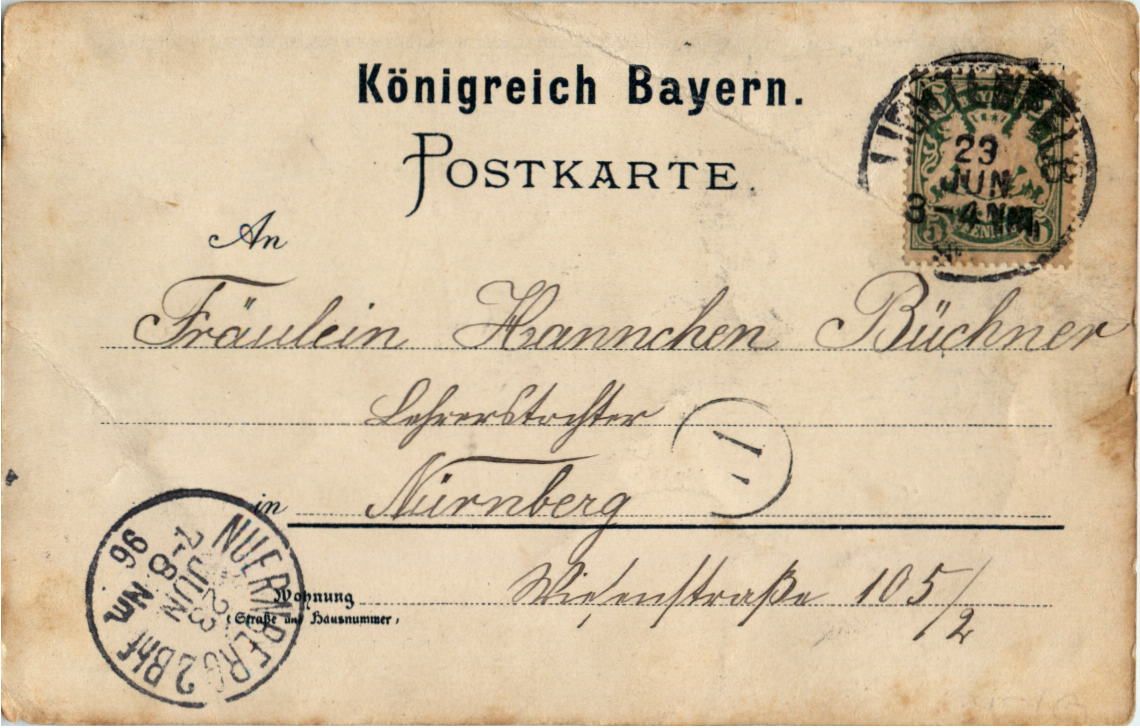 Königreich Bayern.
POSTKARTE.
LICHTENFELS
23
JUN
3-4 NM.
5 5
An
Fräulein Hannchen Büchner
Lehrerstochter
1
in Nürnberg
Wohnung Wiesenstraße 105/2
(Straße und Hausnummer)
NUERNBERG 2 Bhf
23
JUN
7-8 Nm
96